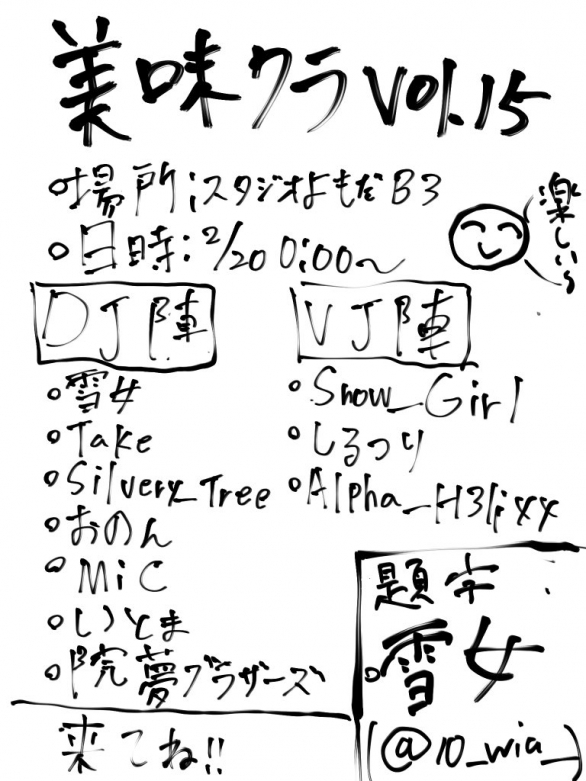 美味クラ Vol.15
○場所:スタジオよもだB3
○日時:2/20 0:00〜
楽しいよ
DJ陣
○雪女
○Take
○Silvery_Tree
○おのん
○MiC
○しいとま
○院夢ブラザーズ
VJ陣
○Snow_Girl
○しるつり
○Alpha_H3lixx
来てね!!
題字
雪女
(@10_wia_)